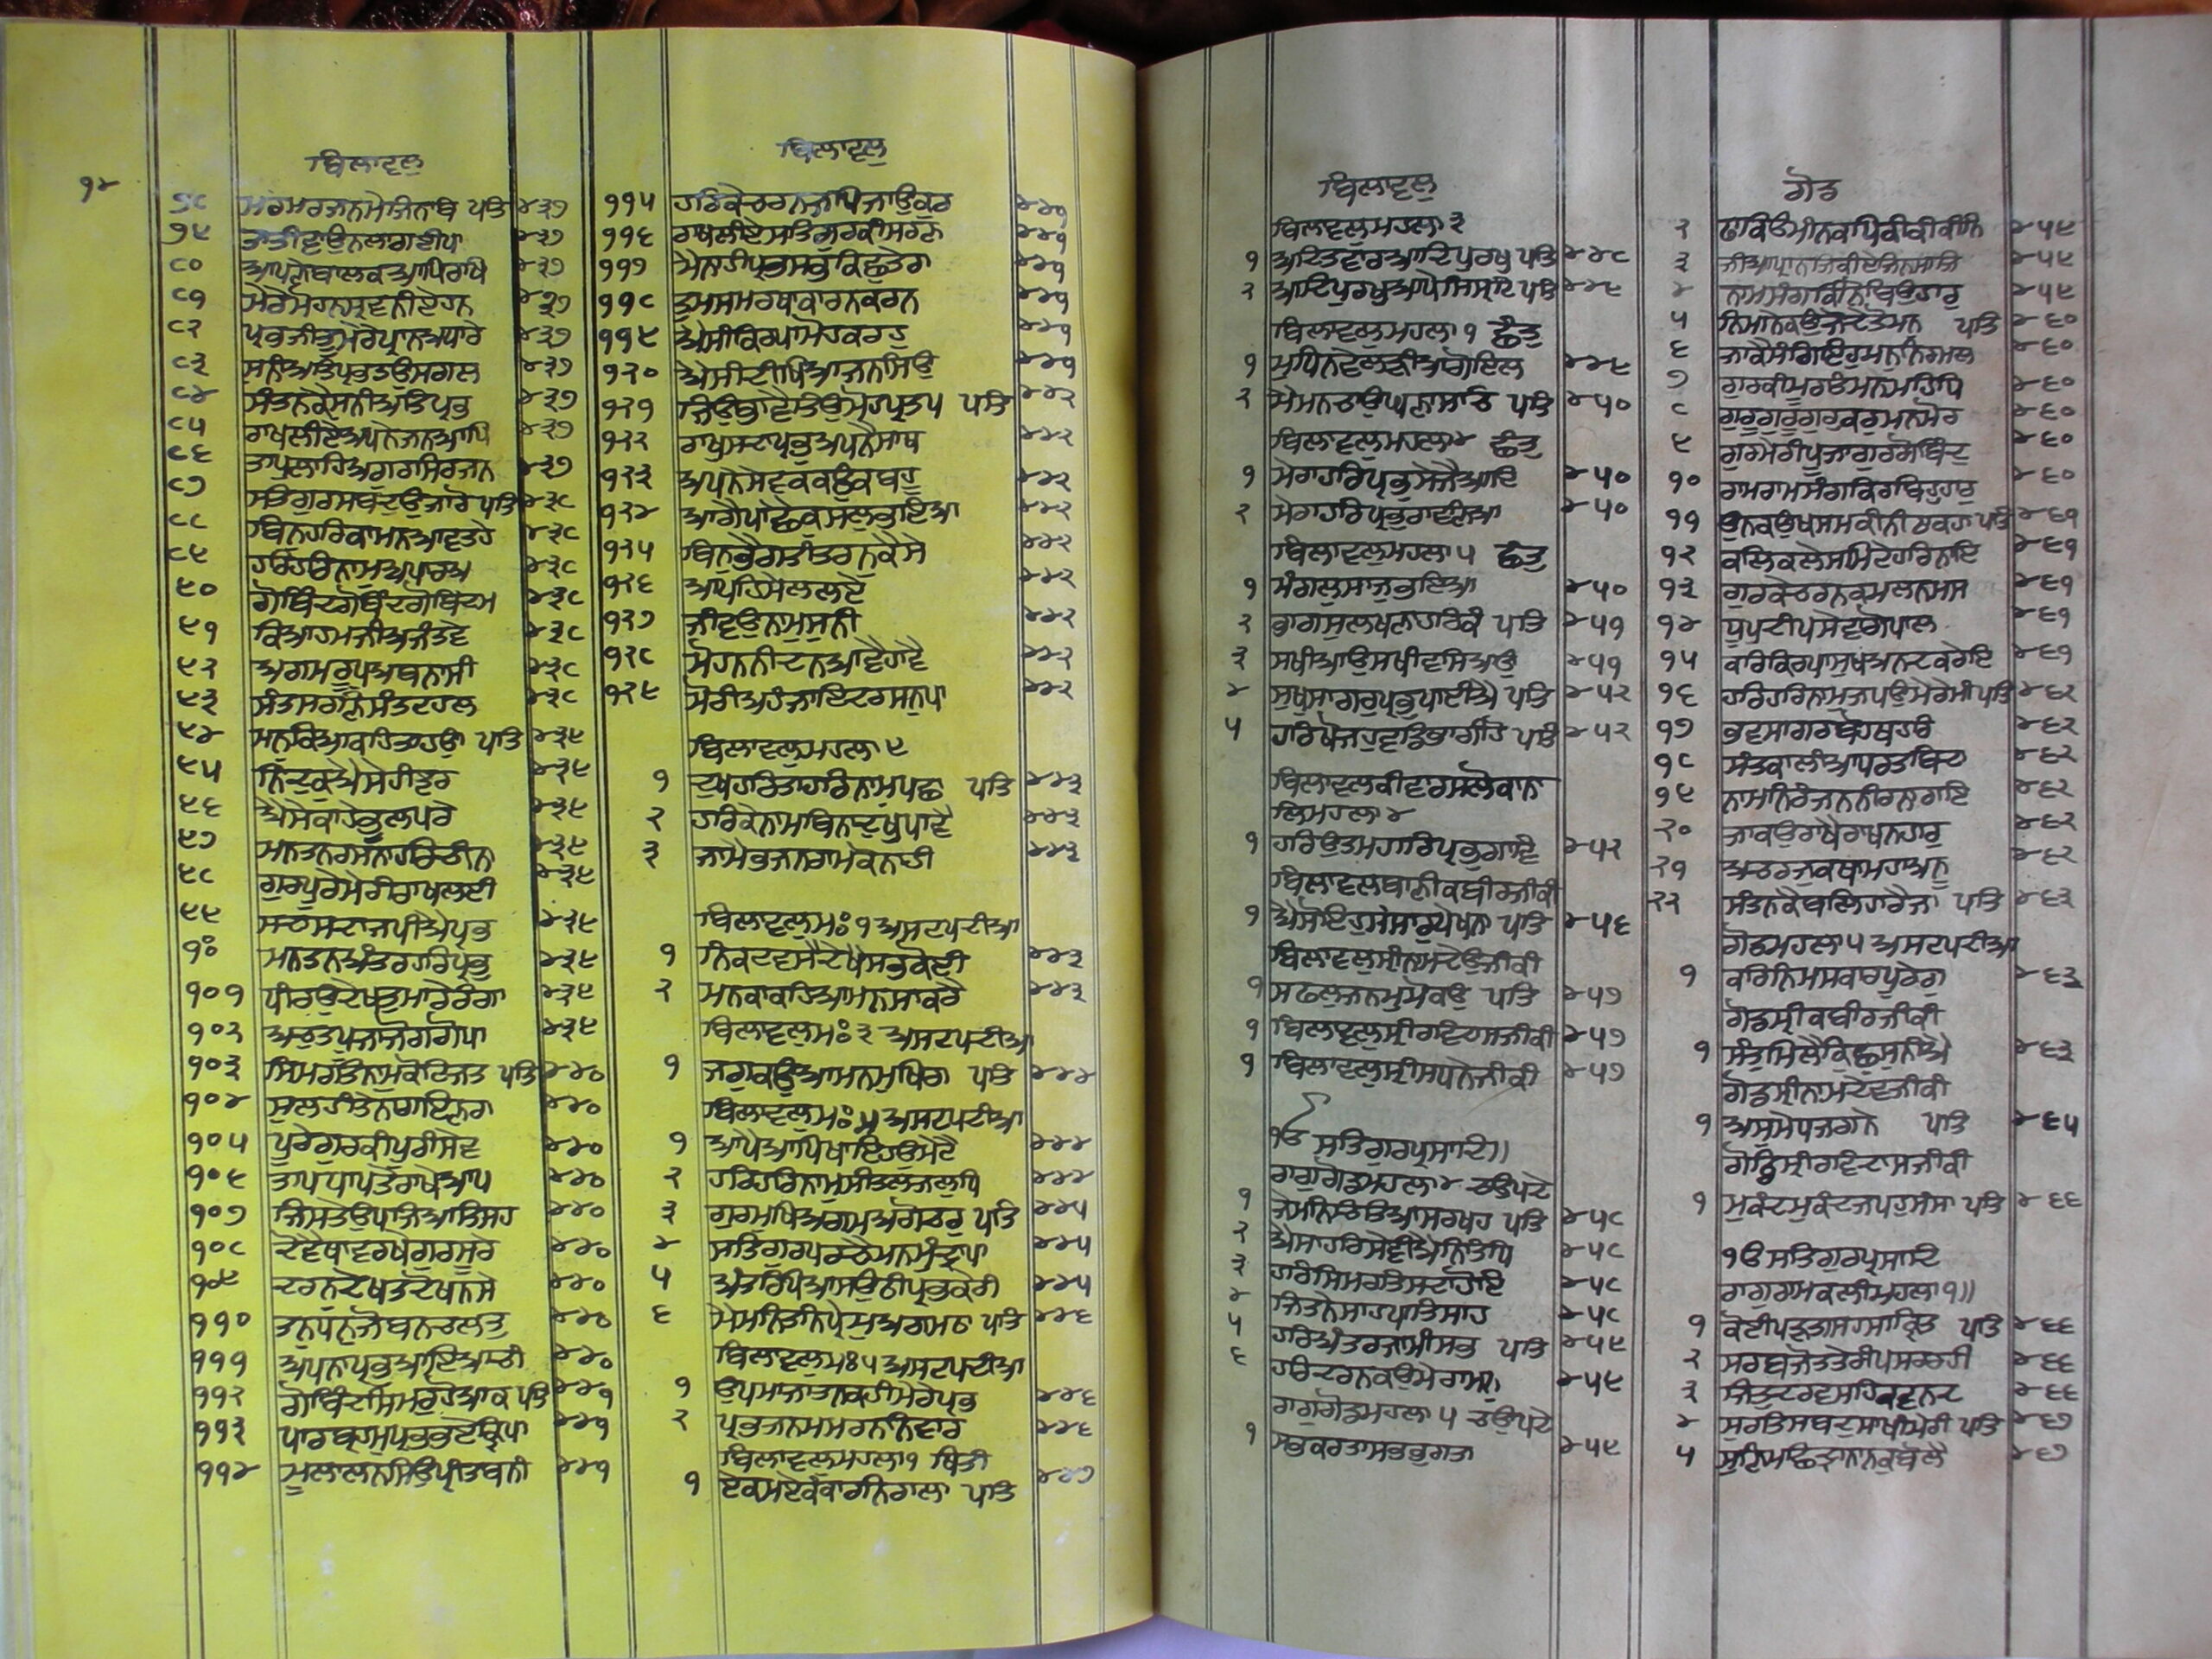 ੧੪
ਬਿਲਾਵਲੁ
੭੯ ਤਾਤੀਵਾਉਨਲਾਗਈਪਾ ੪੩੭
੮੦ ਆਪਨੇਬਾਲਕਆਪਿਰਾਖਿ ੪੩੭
੮੧ ਮੇਰੇਮੋਹਨਸ੍ਰਵਨੀਇਹਨ ੪੩੭
੮੨ ੪੩੭
੮੩ ੪੩੭
੮੪ ਸੰਤਨਕੈਸੁਨੀਅਤਪ੍ਰਭ ੪੩੭
੮੫ ਰਾਖਲੀਏਅਪਨੇਜਨਆਪਿ ੪੩੭
੮੬ ੪੩੭
੮੭ ਸਤਿਗੁਰਸਬਦਿਉਜਾਰੋ ਪਤਿ ੪੩੮
੮੮ ੪੩੮
੮੯ ੪੩੮
੯੦ ਗੋਬਿੰਦਗੋਬਿੰਦਗੋਬਿੰਦਮ ੪੩੮
੯੧ ਕਿਆਹਮਜੀਅਜੰਤਵੇ ੪੩੮
੯੨ ਅਗਮਰੂਪਅਬਨਾਸੀ ੪੩੮
੯੩ ਸੰਤਸਰਣਿਸੰਤਟਹਲ ੪੩੮
੯੪ ਮਨਕਿਆਕਹਤਾਹਉ ਪਤਿ ੪੩੯
੯੫ ਨਿੰਦਕੁਐਸੇਹੀਝਰ ੪੩੯
੯੬ ਐਸੇਕਾਹੇਭੂਲਪਰੇ ੪੩੯
੯੭ ਮਨਤਨਰਸਨਾਹਰਿਚੀਨਾ ੪੩੯
੯੮ ਗੁਰਪੂਰੇਮੇਰੀਰਾਖਲਈ ੪੩੯
੯੯ ਸਦਾਸਦਾਜਪੀਐਪ੍ਰਭ ੪੩੯
੧੦੦ ਮਨਤਨਅੰਤਰਹਰਿਪ੍ਰਭੁ ੪੩੯
੧੦੧ ਧੀਰਉਦੇਖਤੁਮਾਰੇਰੰਗਾ ੪੩੯
੧੦੨ ਅਚੁਤਪੂਜਾਜੋਗਗੋਪਾ ੪੩੯
੧੦੩ ਸਿਮਰਤਨਾਮੁਕੋਟਿਜਤ ਪਤਿ ੪੪੦
੧੦੪ ੪੪੦
੧੦੫ ਪੂਰੇਗੁਰਕੀਪੂਰੀਸੇਵ ੪੪੦
੧੦੬ ਤਾਪਪਾਪਤੇਰਾਖੇਆਪ ੪੪੦
੧੦੭ ਜਿਸਤੇਉਪਜਿਆਤਿਸਹ ੪੪੦
੧੦੮ ਦੋਵੈਥਾਵਰਖੇਗੁਰਸੂਰੇ ੪੪੦
੧੦੯ ਦਰਸਨੁਦੇਖਤਦੋਖਨਸੇ ੪੪੦
੧੧੦ ਤਨੁਧਨੁਜੋਬਨਚਲਤੁ ੪੪੦
੧੧੧ ੪੪੦
੧੧੨ ਗੋਬਿੰਦੁਸਿਮਰਹੋਆਕ ਪਤਿ ੪੪੧
੧੧੩ ਪਾਰਬ੍ਰਹਮਪ੍ਰਭਭਏਕ੍ਰਿਪਾ ੪੪੧
੧੧੪ ਮੂਲਾਲਨਸਿਉਪ੍ਰੀਤਬਨੀ ੪੪੧
ਬਿਲਾਵਲੁ
੧੧੫ ਹਰਿਕੇਚਰਨਜਪਿਜਾਉਕੁਰ ੪੪੧
੧੧੬ ਰਾਖਲੀਏਸਤਿਗੁਰਕੀਸਰਣ ੪੪੧
੧੧੭ ਮੈਨਾਹੀਪ੍ਰਭਸਭੁਕਿਛੁਤੇਰਾ ੪੪੧
੧੧੮ ਤੁਮਸਮਰਥਾਕਾਰਨਕਰਨ ੪੪੧
੧੧੯ ਐਸੀਕਿਰਪਾਮੋਹਕਰਹੁ ੪੪੧
੧੨੦ ਐਸੀਦੀਖਿਆਜਨਸਿਉ ੪੪੧
੧੨੧ ਜਿਉਭਾਵੈਤਿਉਮੋਹਪ੍ਰਤਪ ਪਤਿ ੪੪੨
੧੨੨ ਰਾਖੁਸਦਾਪ੍ਰਭੁਅਪਨੈਸਾਥ ੪੪੨
੧੨੩ ਅਪਨੇਸੇਵਕਕਉਕਬਹੁ ੪੪੨
੧੨੪ ਆਗੈਪਾਛੈਕੁਸਲੁਭਇਆ ੪੪੨
੧੨੫ ਬਿਨੁਭੈਭਗਤੀਤਰਨੁਕੈਸੇ ੪੪੨
੧੨੬ ਆਪਹਿਮੇਲਲਏ ੪੪੨
੧੨੭ ਜੀਵਉਨਾਮੁਸੁਨੀ ੪੪੨
੧੨੮ ਮੋਹਨਨੀਦਨਆਵੈਹਾਵੈ ੪੪੨
੧੨੯ ਮੋਰੀਅਹੰਜਾਇਦਰਸਨਪਾ ੪੪੨
ਬਿਲਾਵਲੁਮਹਲਾ੯
੧ ਦੁਖਹਰਤਾਹਰਿਨਾਮੁਪਛਾ ਪਤਿ ੪੪੩
੨ ਹਰਿਕੇਨਾਮਬਿਨਾਦੁਖੁਪਾਵੈ ੪੪੩
੩ ਜਾਮੈਭਜਨਰਾਮਕੋਨਾਹੀ ੪੪੩
ਬਿਲਾਵਲੁਮਃ੧ਅਸਟਪਦੀਆ
੧ ਨਿਕਟਵਸੈਦੇਖੈਸਭੁਕੋਈ ੪੪੩
੨ ਮਨਕਾਕਹਿਆਮਨਸਾਕਰੈ ੪੪੩
ਬਿਲਾਵਲੁਮਃ੩ ਅਸਟਪਦੀਆ
੧ ਜਗੁਕਊਆਮਨਮੁਖਿਗ ਪਤਿ ੪੪੪
ਬਿਲਾਵਲੁਮਃ੪ਅਸਟਪਦੀਆ
੧ ਆਪੈਆਪਿਖਾਇਹਉਮੇਟੈ ੪੪੪
੨ ਹਰਿਹਰਿਨਾਮੁਸੀਤਲਜਲੁਧਿ ੪੪੪
੩ ਗੁਰਮੁਖਿਅਗਮਅਗੋਚਰੁ ਪਤਿ ੪੪੫
੪ ਸਤਿਗੁਰਪਰਚੈਮਨਮੁੰਦ੍ਰਾਪਾ ੪੪੫
੫ ਅੰਤਰਿਪਿਆਸਉਠੀਪ੍ਰਭਕੇਰੀ ੪੪੫
੬ ਮੈਮਨਿਤਨਿਪ੍ਰੇਮੁਅਗਮਠਾ ਪਤਿ ੪੪੬
ਬਿਲਾਵਲੁਮਃ੫ਅਸਟਪਦੀਆ
੧ ਉਪਮਾਜਾਤਨਕਹੀਮੇਰੇਪ੍ਰਭ ੪੪੬
੨ ਪ੍ਰਭਜਨਮਮਰਨਨਿਵਾਰ ੪੪੬
ਬਿਲਾਵਲੁਮਹਲਾ੧ ਥਿਤੀ
੧ ਏਕਮਏਕੰਕਾਰਨਿਰਾਲਾ ਪਤਿ ੪੪੭
ਬਿਲਾਵਲੁ
ਬਿਲਾਵਲੁਮਹਲਾ੩
੧ ਆਦਿਤਵਾਰਆਦਿਪੁਰਖੁ ਪਤਿ ੪੪੮
੨ ਆਦਿਪੁਰਖੁਆਪੇਸ੍ਰਿਸਟਿ ਪਤਿ ੪੪੯
ਬਿਲਾਵਲੁਮਹਲਾ੧ ਛੰਤੁ
੧ ਮੁੰਧਨਵੇਲੜੀਆਗੋਇਲ ੪੪੯
੨ ਮੈਮਨਚਾਉਘਣਾਸਾਚਿ ਪਤਿ ੪੫੦
ਬਿਲਾਵਲੁਮਹਲਾ੪ ਛੰਤੁ
੧ ਮੇਰਾਹਰਿਪ੍ਰਭੁਸੇਜੈਆਇ ੪੫੦
੨ ਮੇਰਾਹਰਿਪ੍ਰਭੁਰਾਵਣਿਆ ੪੫੦
ਬਿਲਾਵਲੁਮਹਲਾ੫ ਛੰਤੁ
੧ ਮੰਗਲੁਸਾਜੁਭਇਆ ੪੫੦
੨ ਭਾਗਸੁਲਖਣਾਹਰਿਕੰ ਪਤਿ ੪੫੧
੩ ਸਖੀਆਉਸਖੀਵਸਿਆਉ ੪੫੧
੪ ਸੁਖਸਾਗਰਪ੍ਰਭੁਪਾਈਐ ਪਤਿ ੪੫੨
੫ ਹਰਿਖੋਜਹੁਵਡਭਾਗੀਹੋ ਪਤਿ ੪੫੨
ਬਿਲਾਵਲਕੀਵਾਰਸਲੋਕਾਨਾ
ਲਿਮਹਲਾ੪
੧ ਹਰਿਉਤਮਹਰਿਪ੍ਰਭੁਗਾਵੈ ੪੫੨
ਬਿਲਾਵਲਬਾਣੀਕਬੀਰਜੀਕੀ
੧ ਐਸੋਇਹੁਸੰਸਾਰੁਪੇਖਨਾ ਪਤਿ ੪੫੬
ਬਿਲਾਵਲੁਸ੍ਰੀਨਾਮਦੇਉਜੀਕੀ
੧ ਸਫਲਜਨਮੁਮੋਕਉ ਪਤਿ ੪੫੭
੧ ਬਿਲਾਵਲੁਸ੍ਰੀਰਵਿਦਾਸਜੀਕੀ ੪੫੭
੧ ਬਿਲਾਵਲੁਸ੍ਰੀਸਧਨੇਜੀਕੀ ੪੫੭
ੴ ਸਤਿਗੁਰਪ੍ਰਸਾਦਿ॥
ਰਾਗੁਗੋਡਮਹਲਾ੪ ਚਉਪਦੇ
੧ ਜੇਮਨਿਚਿਤਿਆਸਰਖਹ ਪਤਿ ੪੫੮
੨ ਐਸਾਹਰਿਸੇਵੀਐਨਿਤਧਿ ੪੫੮
੩ ਹਰਿਸਿਮਰਤਸਦਾਹੋਇ ੪੫੮
੪ ਜਿਤਨੇਸਾਹਪਾਤਿਸਾਹ ੪੫੮
੫ ਹਰਿਅੰਤਰਜਾਮੀਸਭ ਪਤਿ ੪੫੯
੬ ਹਰਿਦਰਸਨਕਉਮੇਰਾਮਨੁ ੪੫੯
ਰਾਗੁਗੋਡਮਹਲਾ੫ ਚਉਪਦੇ
੧ ਸਭਕਰਤਾਸਭਭੁਗਤਾ ੪੫੯
ਗੋਡ
੨ ਫਾਕਿਓਮੀਨਕਪਿਕੀਕੀਨਿ ੪੫੯
੩ ਜੀਅਪ੍ਰਾਨਕੀਏਜਿਨਸਾਜਿ ੪੫੯
੪ ਨਾਮਸੰਗਕੀਨੋਬਿਉਹਾਰੁ ੪੫੯
੫ ਨਿਮਾਨੇਕਉਜੋਦੇਤੋਮਾਨ ਪਤਿ ੪੬੦
੬ ਜਾਕੈਸੰਗਿਇਹੁਮਨੁਨਿਰਮਲ ੪੬੦
੭ ਗੁਰਕੀਮੂਰਤਮਨਮਹਿਧਿ ੪੬੦
੮ ਗੁਰੂਗੁਰੂਗੁਰੁਕਰਮਨਮੋਰ ੪੬੦
੯ ਗੁਰੁਮੇਰੀਪੂਜਾਗੁਰੁਗੋਬਿੰਦੁ ੪੬੦
੧੦ ਰਾਮਰਾਮਸੰਗਕਰਿਬਿਉਹਾਰੁ ੪੬੦
੧੧ ਉਨਕਉਖਸਮਕੀਨੀਠਾਕਹਾ ਪਤਿ ੪੬੧
੧੨ ਕਲਿਕਲੇਸਮਿਟੇਹਰਿਨਾਇ ੪੬੧
੧੩ ਗੁਰਕੇਚਰਨਕਮਲਨਮਸ ੪੬੧
੧੪ ਧੂਪਦੀਪਸੇਵਗੋਪਾਲ ੪੬੧
੧੫ ਕਰਿਕਿਰਪਾਸੁਖਅਨਦਕਰੇਇ ੪੬੧
੧੬ ਹਰਿਹਰਿਨਾਮੁਜਪਉਮੇਰੇਮੀ ਪਤਿ ੪੬੨
੧੭ ਭਵਸਾਗਰਬੋਹਿਥਹਰਿ ੪੬੨
੧੮ ਸੰਤਕਾਲੀਆਧਰਤਬਿਦ ੪੬੨
੧੯ ਨਾਮਨਿਰੰਜਨਨੀਰਨਰਾਇ ੪੬੨
੨੦ ਜਾਕਉਰਾਖੈਰਾਖਨਹਾਰੁ ੪੬੨
੨੧ ਅਚਰਜਕਥਾਮਹਾਅਨੂ ੪੬੨
੨੨ ਸੰਤਨਕੈਬਲਿਹਾਰੈਜਾ ਪਤਿ ੪੬੩
ਗੋਡਮਹਲਾ੫ ਅਸਟਪਦੀਆ
੧ ਕਰਿਨਮਸਕਾਰਪੂਰੇਗੁ ੪੬੩
ਗੋਡਸ੍ਰੀਕਬੀਰਜੀਕੀ
੧ ਸੰਤੁਮਿਲੈਕਿਛੁਸੁਨੀਐ ੪੬੩
ਗੋਡਸ੍ਰੀਨਾਮਦੇਵਜੀਕੀ
੧ ਅਸੁਮੇਧਜਗਨੇ ਪਤਿ ੪੬੫
ਗੋਡਿਸ੍ਰੀਰਵਿਦਾਸਜੀਕੀ
੧ ਮੁਕੰਦਮੁਕੰਦਜਪਹੁਸੰਸਾ ਪਤਿ ੪੬੬
ੴ ਸਤਿਗੁਰਪ੍ਰਸਾਦਿ
ਰਾਗੁਰਾਮਕਲੀਮਹਲਾ੧॥
੧ ਕੋਈਪੜਤਾਸਹਸਾਕਿਰਤ ਪਤਿ ੪੬੬
੨ ਸਰਬਜੋਤਤੇਰੀਪਸਰਰਹੀ ੪੬੬
੩ ਜਿਤੁਦਰਵਸਹਿਕਵਨਦ ੪੬੬
੪ ਸੁਰਤਿਸਬਦੁਸਾਖੀਮੇਰੀ ਪਤਿ ੪੬੭
੫ ਸੁਣਿਮਾਛਿੰਦ੍ਰਾਨਾਨਕੁਬੋਲੈ ੪੬੭